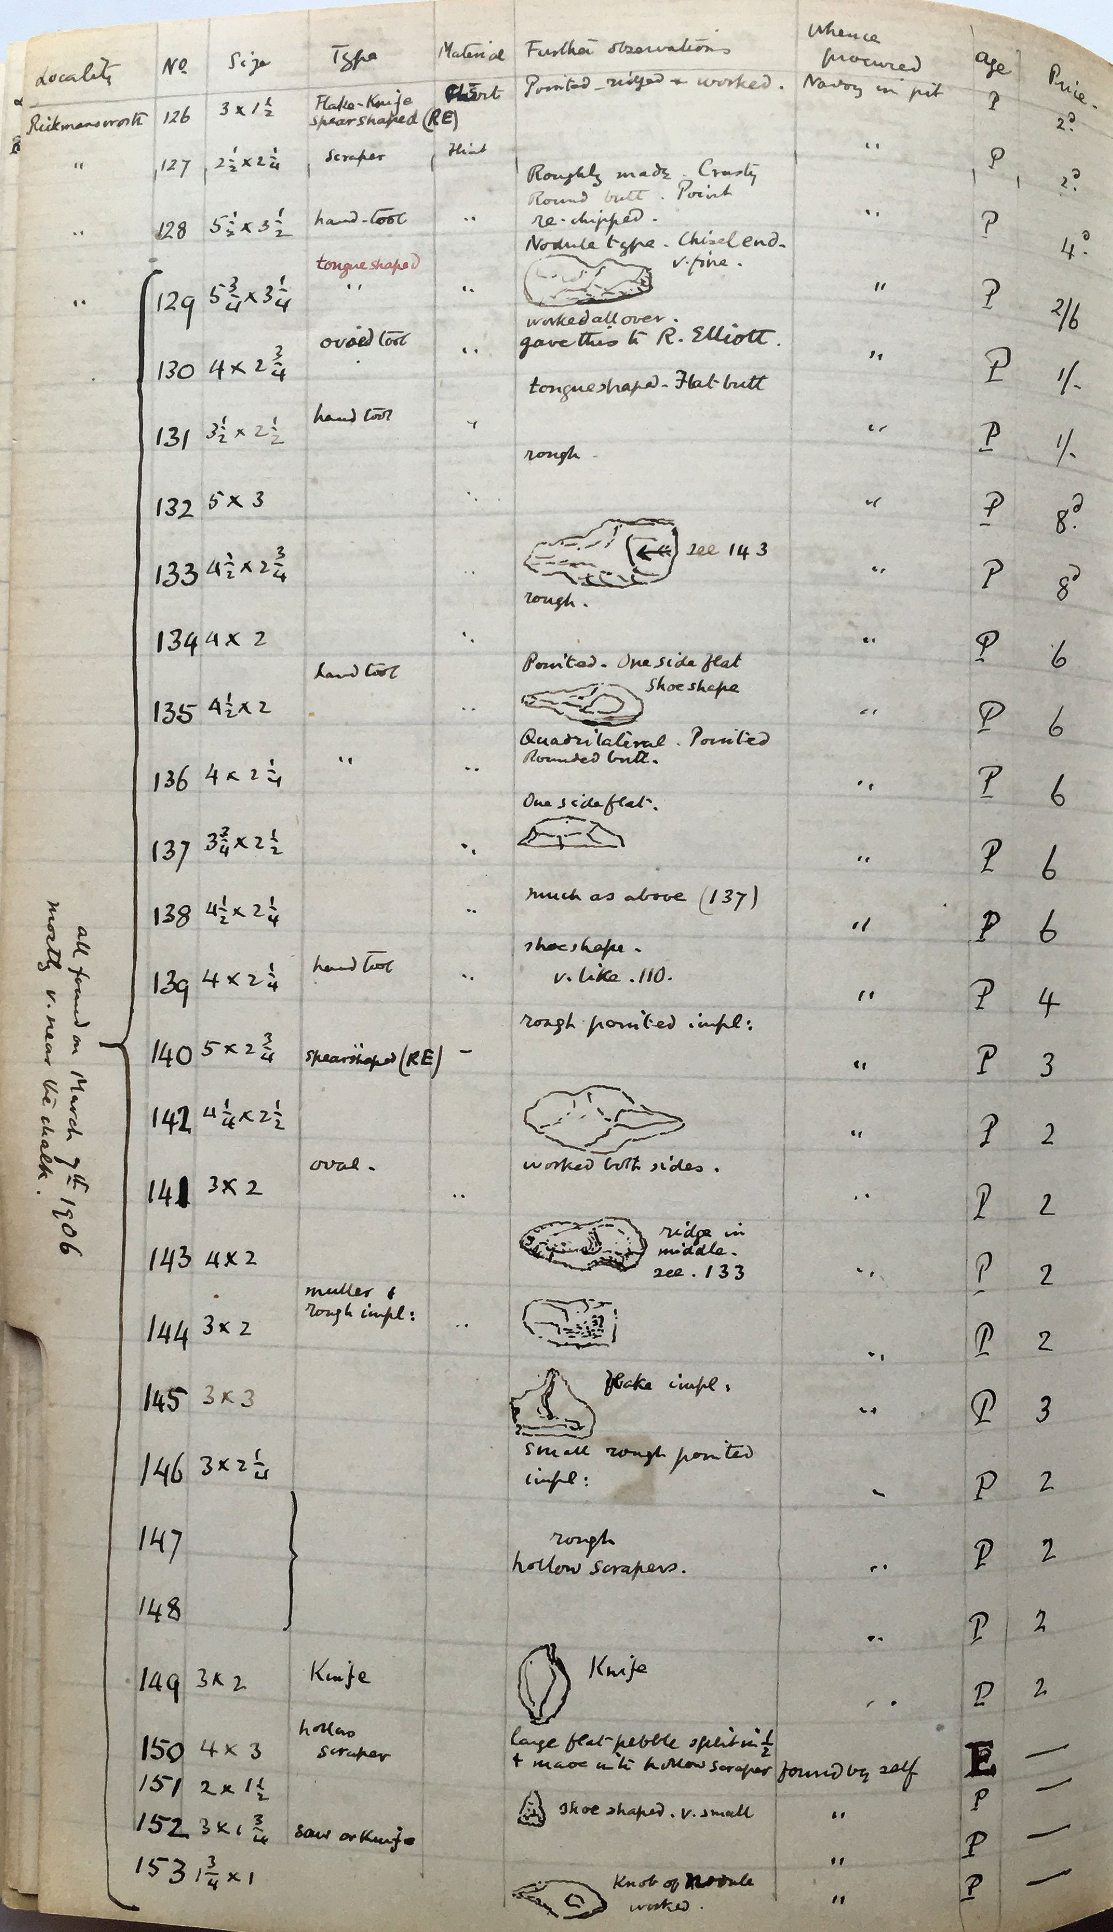 Locality No Size Type Material Further observations Whence procured Age Price.
Rickmansworth 126 3 x 1½ Flake-Knife spearshaped (RE) Chert Pointed - ridged + worked. Navvy in pit P 2d.
" 127 2½ x 2¼ Scraper Flint " P 2d.
" 128 5½ x 3½ hand-tool " Roughly made. Crusty
Round butt. Point
re-chipped. " P 4d.
" 129 5¾ x 3¼ tongue shaped " " Nodule type - Chisel end.
v. fine. " P 2/6
130 4 x 2¾ ovoid tool " worked all over.
gave this to R. Elliott. " P 1/-
131 3½ x 2½ hand tool " tongue shaped - Flat butt " P 1/-
132 5 x 3 " rough. " P 8d.
133 4½ x 2¾ " see 143 " P 8d
134 4 x 2 " rough. " P 6
135 4½ x 2 hand tool " Pointed - One side flat
Shoe shape " P 6
136 4 x 2¼ " " Quadrilateral. Pointed
Rounded butt. " P 6
137 3¾ x 2½ " One side flat. " P 6
138 4½ x 2¼ " much as above (137) " P 6
139 4 x 2¼ hand tool " shoe shape.
v. like . 110. " P 4
140 5 x 2¾ spearshaped (RE) - rough pointed impl: " P 3
142 4¼ x 2½ " P 2
141 3 x 2 oval. " worked both sides. " P 2
143 4 x 2 ridge in
middle.
see . 133 " P 2
144 3 x 2 muller &
rough impl: " " P 2
145 3 x 3 flake impl: " P 3
146 3 x 2¼ small rough pointed
impl: " P 2
147 rough
hollow scrapers. " P 2
148 " P 2
149 3 x 2 Knife Knife " P 2
150 4 x 3 hollow
scraper large flat pebble split in ½
+ made into hollow scraper found by self E —
151 2 x 1½ shoe shaped. v. small " P —
152 3 x 1¾ saw or Knife " P —
153 1¾ x 1 Knob of nodule
worked. " P —
all found on March 9th 1906
mostly v. near the chalk.